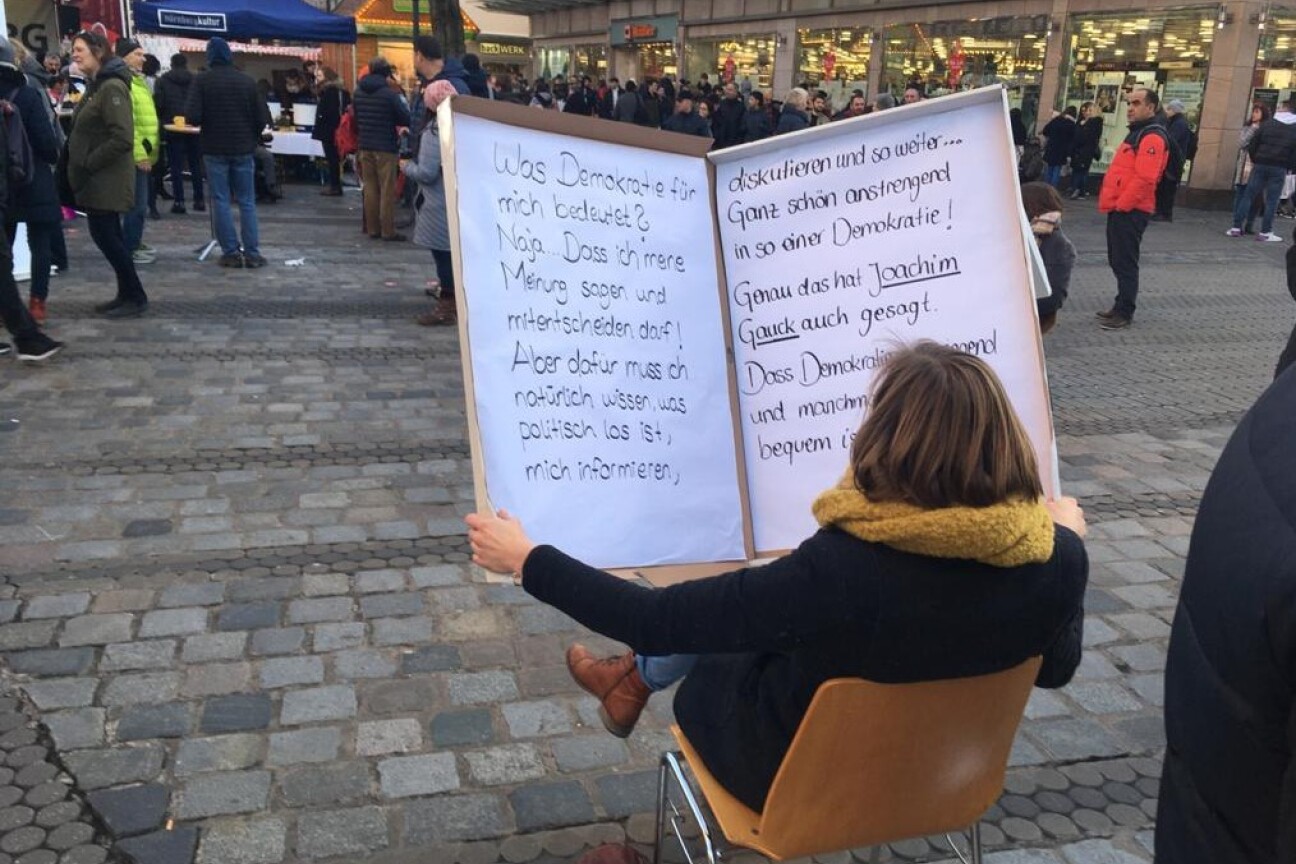 RG
nürnbergkultur
WERK
Was Demokratie für
mich bedeutet?
Naja... Dass ich meine
Meinung sagen und
mitentscheiden darf!
Aber dafür muss ich
natürlich wissen, was
politisch los ist,
mich informieren,
diskutieren und so weiter...
Ganz schön anstrengend
in so einer Demokratie!
Genau das hat Joachim
Gauck auch gesagt.
Dass Demokratie
und manchm
bequem is